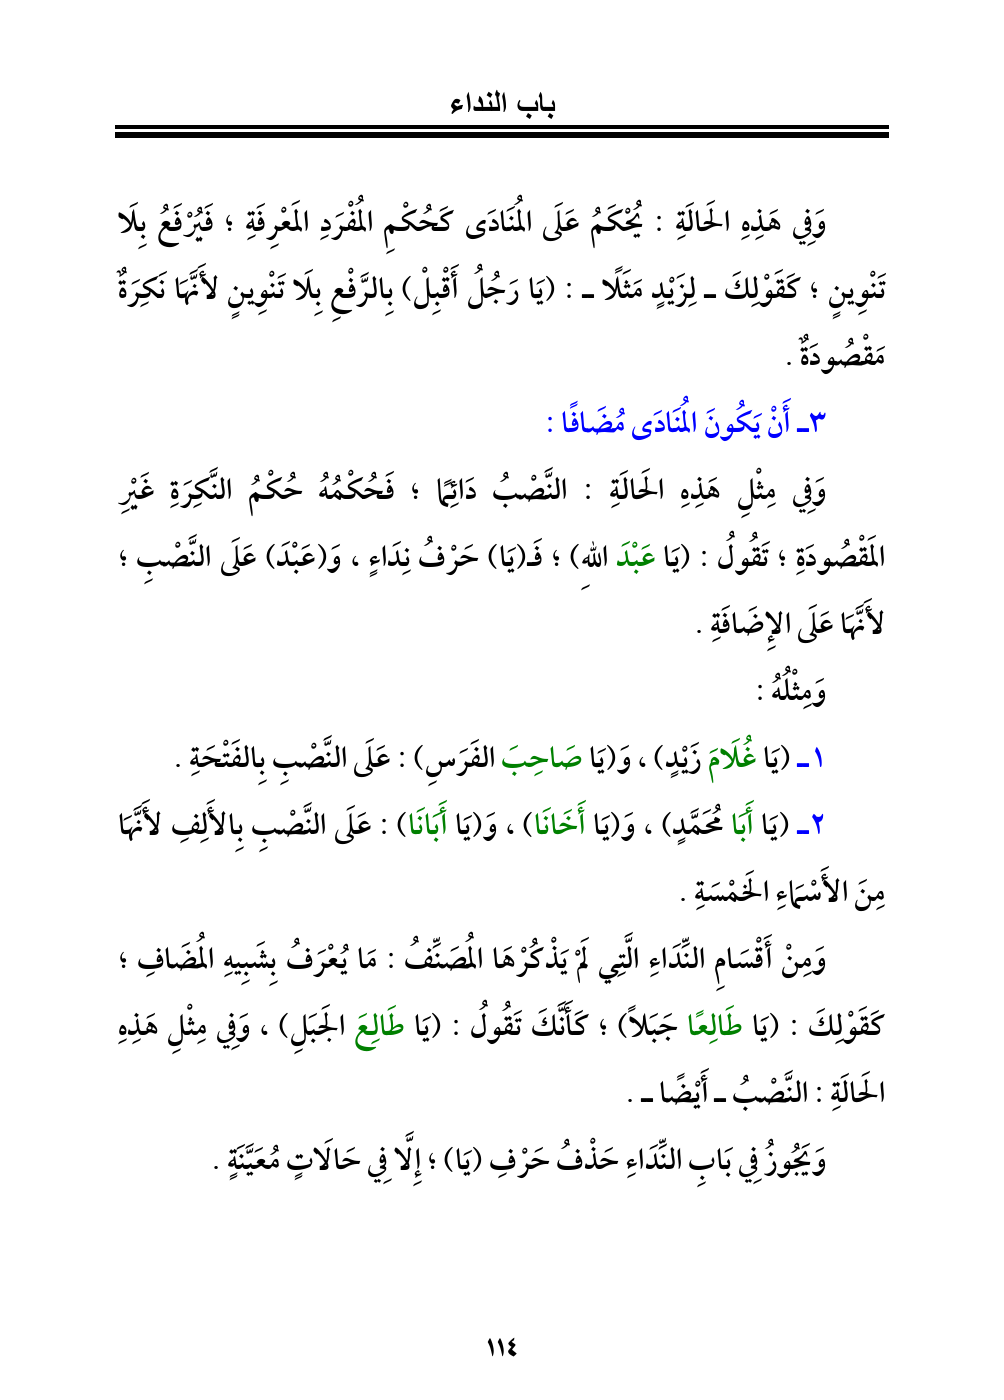 باب النداء
وَفِي هَذِهِ الحَالَةِ : يُحْكَمُ عَلَى المُنَادَى كَحُكْمِ المُفْرَدِ المَعْرِفَةِ ؛ فَيُرْفَعُ بِلَا
تَنْوِينٍ ؛ كَقَوْلِكَ ـ لِزَيْدٍ مَثَلًا ـ : (يَا رَجُلُ أَقْبِلْ) بِالرَّفْعِ بِلَا تَنْوِينٍ لأَنَّهَا نَكِرَةٌ
مَقْصُودَةٌ .
٣ـ أَنْ يَكُونَ المُنَادَى مُضَافًا :
وَفِي مِثْلِ هَذِهِ الحَالَةِ : النَّصْبُ دَائِمًا ؛ فَحُكْمُهُ حُكْمُ النَّكِرَةِ غَيْرِ
المَقْصُودَةِ ؛ تَقُولُ : (يَا عَبْدَ اللهِ) ؛ فَـ(يَا) حَرْفُ نِدَاءٍ ، وَ(عَبْدَ) عَلَى النَّصْبِ ؛
لأَنَّهَا عَلَى الإِضَافَةِ .
وَمِثْلُهُ :
١ـ (يَا غُلَامَ زَيْدٍ) ، وَ(يَا صَاحِبَ الفَرَسِ) : عَلَى النَّصْبِ بِالفَتْحَةِ .
٢ـ (يَا أَبَا مُحَمَّدٍ) ، وَ(يَا أَخَانَا) ، وَ(يَا أَبَانَا) : عَلَى النَّصْبِ بِالأَلِفِ لأَنَّهَا
مِنَ الأَسْمَاءِ الخَمْسَةِ .
وَمِنْ أَقْسَامِ النِّدَاءِ الَّتِي لَمْ يَذْكُرْهَا المُصَنِّفُ : مَا يُعْرَفُ بِشَبِيهِ المُضَافِ ؛
كَقَوْلِكَ : (يَا طَالِعًا جَبَلاً) ؛ كَأَنَّكَ تَقُولُ : (يَا طَالِعَ الجَبَلِ) ، وَفِي مِثْلِ هَذِهِ
الحَالَةِ : النَّصْبُ ـ أَيْضًا ـ .
وَيَجُوزُ فِي بَابِ النِّدَاءِ حَذْفُ حَرْفِ (يَا) ؛ إِلَّا فِي حَالَاتٍ مُعَيَّنَةٍ .
١١٤